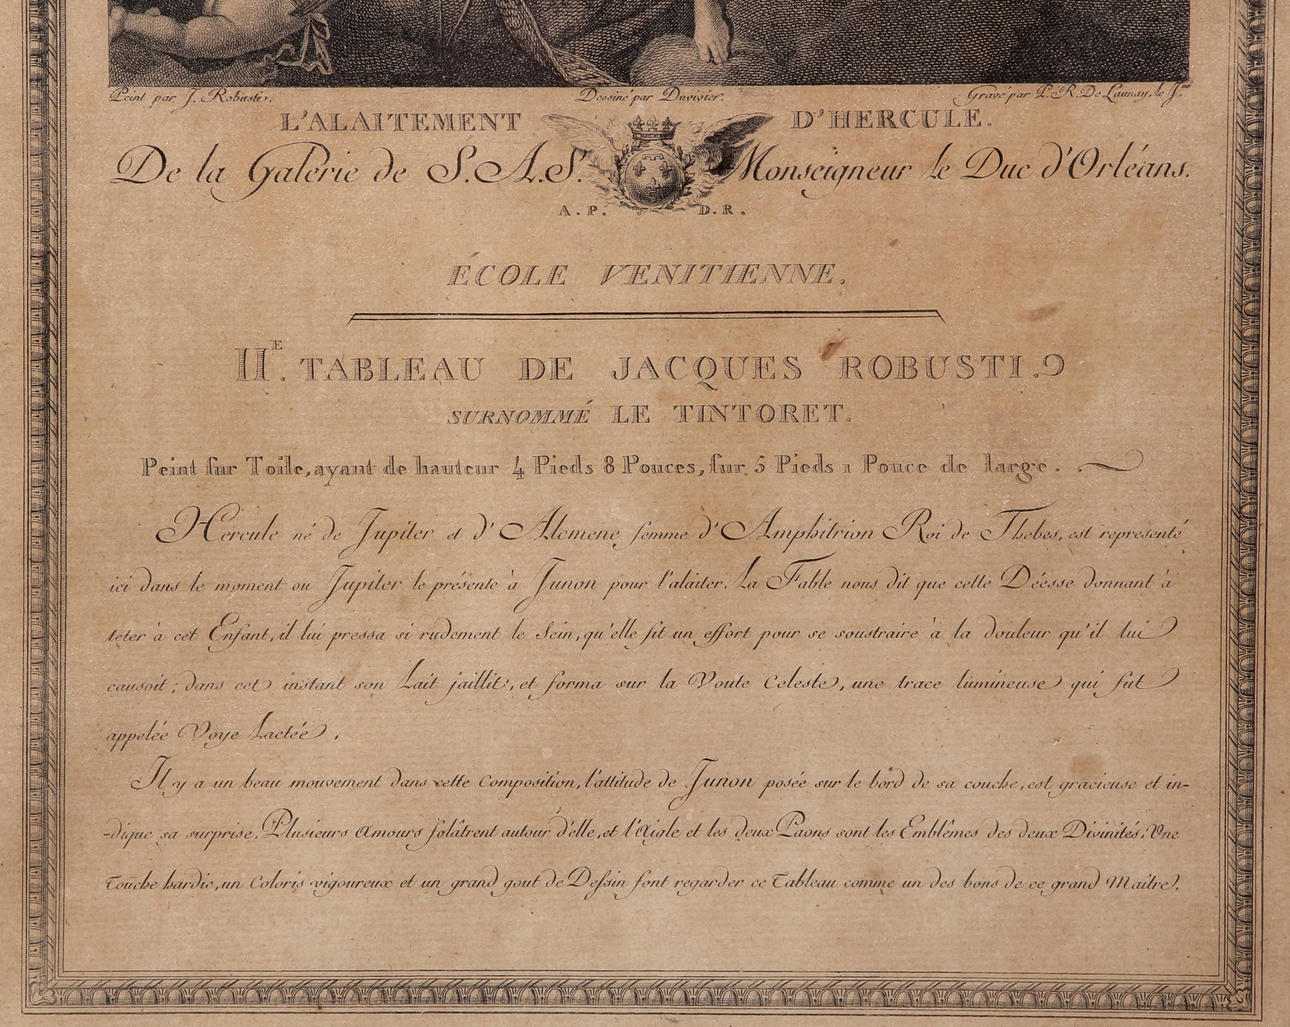 Peint par J. Robusti. Dessiné par Duvivier. Gravé par P. R. De Launay, le J.ne
L'ALAITEMENT D'HERCULE.
De la Galérie de S. A. S. Monseigneur le Duc d'Orléans.
A. P. D. R.
ÉCOLE VENITIENNE.
II.E TABLEAU DE JACQUES ROBUSTI.
SURNOMMÉ LE TINTORET.
Peint sur Toile, ayant de hauteur 4 Pieds 8 Pouces, sur 5 Pieds 1 Pouce de large.
Hercule né de Jupiter et d'Alcmene femme d'Amphitrion Roi de Thebes, est representé
ici dans le moment ou Jupiter le présente à Junon pour l'alaiter. La Fable nous dit que cette Déesse donnant à
teter à cet Enfant, il lui pressa si rudement le Sein, qu'elle fit un effort pour se soustraire à la douleur qu'il lui
causoit; dans cet instant son Lait jaillit, et forma sur la Voute Celeste, une trace lumineuse qui fut
appelée Voye Lactée.
Il y a un beau mouvement dans cette Composition, l'attitude de Junon posée sur le bord de sa couche, est gracieuse et in-
-dique sa surprise. Plusieurs Amours folâtrent autour d'elle, et l'Aigle et les deux Paons sont les Emblêmes des deux Divinités. Une
Touche hardie, un Coloris vigoureux et un grand gout de Dessin font regarder ce Tableau comme un des bons de ce grand Maître.